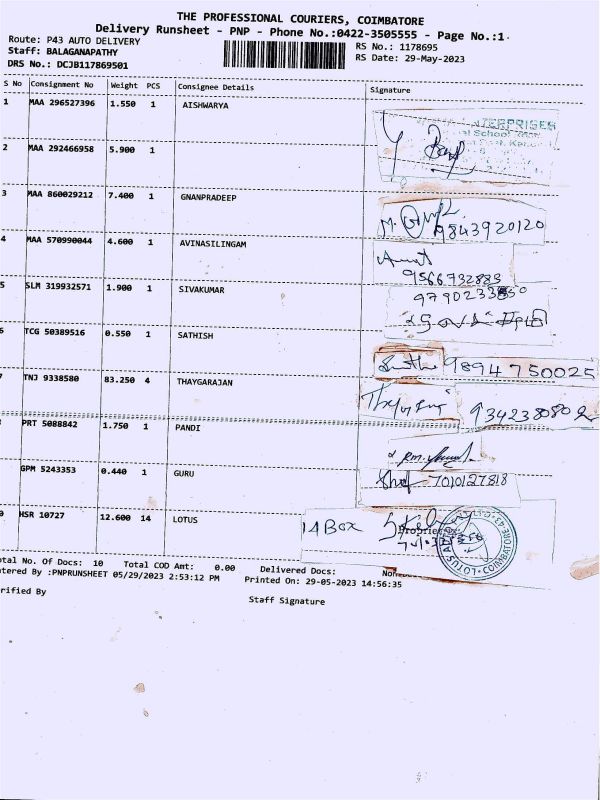 THE PROFESSIONAL COURIERS, COIMBATORE
Delivery Runsheet - PNP - Phone No.:0422-3505555 - Page No.:1
Route: P43 AUTO DELIVERY
RS No.: 1178695
Staff: BALAGANAPATHY
RS Date: 29-May-2023
DRS No.: DCJB117869501
S No Consignment No Weight PCS Consignee Details Signature
1 MAA 296527396 1.550 1 AISHWARYA
2 MAA 292466958 5.900 1
3 MAA 860029212 7.400 1 GNANPRADEEP
9843920120
4 MAA 570990044 4.600 1 AVINASILINGAM
9566732883
5 SLM 319932571 1.900 1 SIVAKUMAR
6 TCG 50389516 0.550 1 SATHISH
9894750025
7 TNJ 9338580 83.250 4 THAYGARAJAN
PRT 5088842 1.750 1 PANDI
GPM 5243353 0.440 1 GURU
7010127818
HSR 10727 12.600 14 LOTUS
14 Box
COIMBATORE
otal No. Of Docs: 10 Total COD Amt: 0.00 Delivered Docs:
ntered By :PNPRUNSHEET 05/29/2023 2:53:12 PM Printed On: 29-05-2023 14:56:35
rified By
Staff Signature